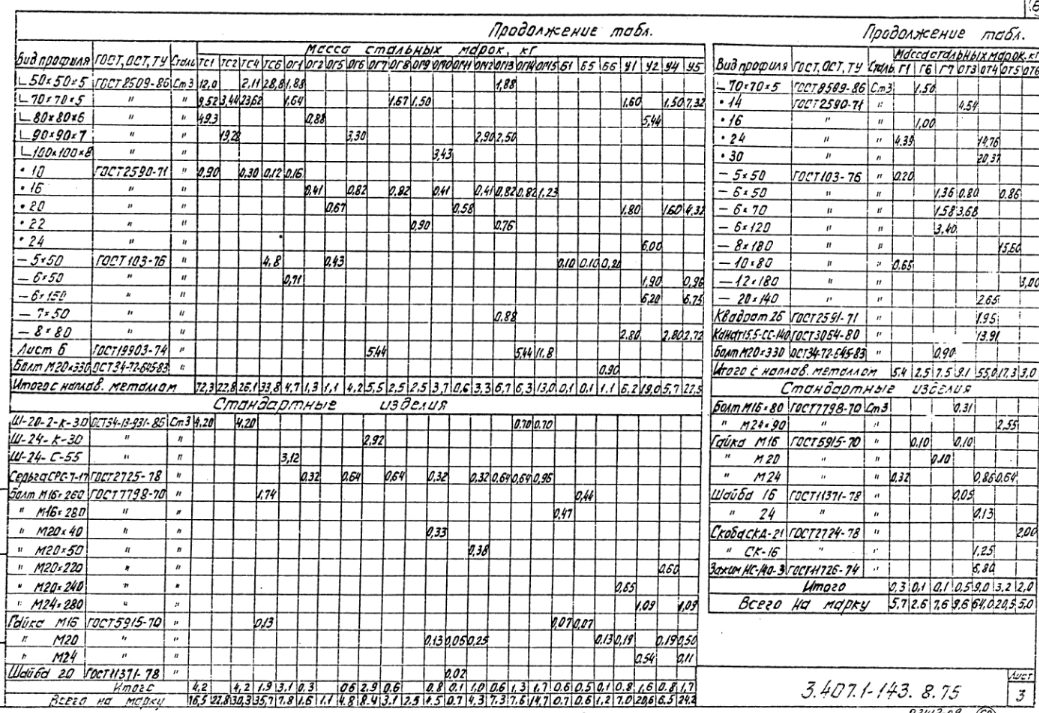 Продолжение табл.
Масса стальных марок, кг
Вид профиля ГОСТ, ОСТ, ТУ Сталь ТС1 ТС2 ТС4 ТС6 ОГ1 ОГ2 ОГ5 ОГ6 ОГ7 ОГ8 ОГ9 ОТ10 ОТ11 ОТ12 ОТ13 ОТ14 ОТ15 Б1 Б5 Б6 У1 У2 У4 У5
∟50×50×5 ГОСТ8509-86 Ст3 12,0 2,11 28,8 1,88 1,88
∟70×70×5 " " 9,52 3,44 23,62 1,64 1,67 1,50 1,60 1,50 7,32
∟80×80×6 " " 49,3 0,88 5,44
∟90×90×7 " " 19,28 3,30 2,90 2,50
∟100×100×8 " " 3,43
• 10 ГОСТ2590-71 " 0,90 0,30 0,12 0,16
• 16 " " 0,41 0,82 0,82 0,41 0,41 0,82 0,82 1,23
• 20 " " 0,67 0,58 1,80 1,60 4,32
• 22 " " 0,90 0,76
• 24 " " 6,00
— 5×50 ГОСТ103-76 " 4,8 0,43 0,10 0,10 0,20
— 6×50 " " 0,71 1,90 0,96
— 6×150 " " 6,20 6,75
— 7×50 " 0,88
— 8×80 " " 2,80 2,80 2,72
Лист 6 ГОСТ19903-74 " 5,44 5,44 11,8
Болт М20×330 ОСТ34-72-645-83 0,90
Итого с наплав. металлом 72,3 22,8 26,1 33,8 4,7 1,3 1,1 4,2 5,5 2,5 2,5 3,7 0,6 3,3 6,7 6,3 13,0 0,1 0,1 1,1 6,2 19,0 5,7 22,5
Стандартные изделия
Ш-20-2-К-30 ОСТ34-13-931-86 Ст3 4,20 4,20 0,70 0,70
Ш-24-К-30 " " 2,92
Ш-24-С-55 " " 3,12
Серьга СРС-7-17 ГОСТ2725-78 " 0,32 0,64 0,64 0,32 0,32 0,64 0,64 0,96
Болт М16×260 ГОСТ7798-70 " 1,74 0,44
" М16×280 " " 0,47
" М20×40 " " 0,33
" М20×50 " " 0,38
" М20×220 " " 0,60
" М20×240 " " 0,65
" М24×280 " " 1,09 1,09
Гайка М16 ГОСТ5915-70 " 0,13 0,07 0,07
" М20 " " 0,13 0,05 0,25 0,13 0,19 0,19 0,50
" М24 " " 0,54 0,11
Шайба 20 ГОСТ11371-78 " 0,02
Итого 4,2 4,2 1,9 3,1 0,3 0,6 2,9 0,6 0,8 0,1 1,0 0,6 1,3 1,7 0,6 0,5 0,1 0,8 1,6 0,8 1,7
Всего на марку 76,5 22,8 30,3 35,7 7,8 1,6 1,1 4,8 8,4 3,1 2,5 4,5 0,7 4,3 7,3 7,6 14,7 0,7 0,6 1,2 7,0 20,6 6,5 24,2
Продолжение табл.
Масса стальных марок, кг
Вид профиля ГОСТ, ОСТ, ТУ Сталь Г1 Г6 Г7 ОТ3 ОТ4 ОТ5 ОТ6
∟70×70×5 ГОСТ8509-86 Ст3 1,50
• 14 ГОСТ2590-71 " 4,54
• 16 " " 1,00
• 24 " " 4,39 14,76
• 30 " " 20,37
— 5×50 ГОСТ103-76 " 0,20
— 6×50 " " 1,36 0,80 0,86
— 6×70 " " 1,58 3,68
— 6×120 " " 3,40
— 8×180 " " 15,60
— 10×80 " " 0,65
— 12×180 " " 3,00
— 20×140 " " 2,65
Квадрат 26 ГОСТ2591-71 " 1,95
Канат15,5-СС-140 ГОСТ3064-80 " 13,91
Болт М20×330 ОСТ34-72-645-83 0,90
Итого с наплав. металлом 5,4 2,5 7,5 9,1 55,0 17,3 3,0
Стандартные изделия
Болт М16×80 ГОСТ7798-70 Ст3 0,31
" М24×90 " " 2,55
Гайка М16 ГОСТ5915-70 " 0,10 0,10
" М20 " " 0,10
" М24 " " 0,32 0,86 0,64
Шайба 16 ГОСТ11371-78 " 0,05
" 24 " " 0,13
Скоба СКД-21 ГОСТ2724-78 " 2,00
" СК-16 " " 1,25
Зажим НС-140-3 ГОСТ11726-74 " 6,80
Итого 0,3 0,1 0,1 0,5 9,0 3,2 2,0
Всего на марку 5,7 2,6 7,6 9,6 64,0 20,5 5,0
3.407.1-143. 8.75
Лист
3